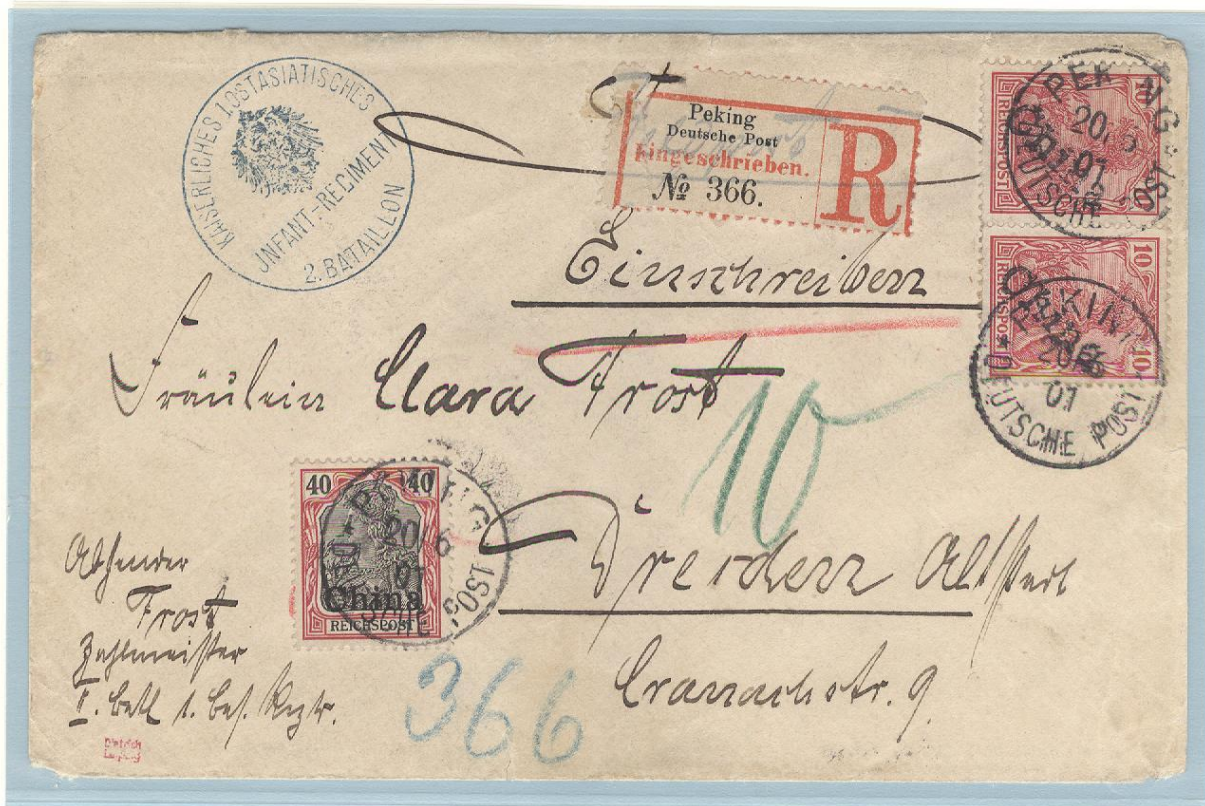 KAISERLICHES 1. OSTASIATISCHES
INFANT.-REGIMENT
2. BATAILLON
Peking
Deutsche Post
Eingeschrieben.
№ 366.
R
REICHSPOST
PEKING
20/6
01
DEUTSCHE POST
10 10
REICHSPOST
China
PEKING
20/6
01
DEUTSCHE POST
Einschreiben
Fräulein Clara Frost
10
40 40
China
REICHSPOST
PEKING
20/6
01
DEUTSCHE POST
Dresden Altstadt
Cranachstr. 9
Absender
Frost
Zahlmeister
366